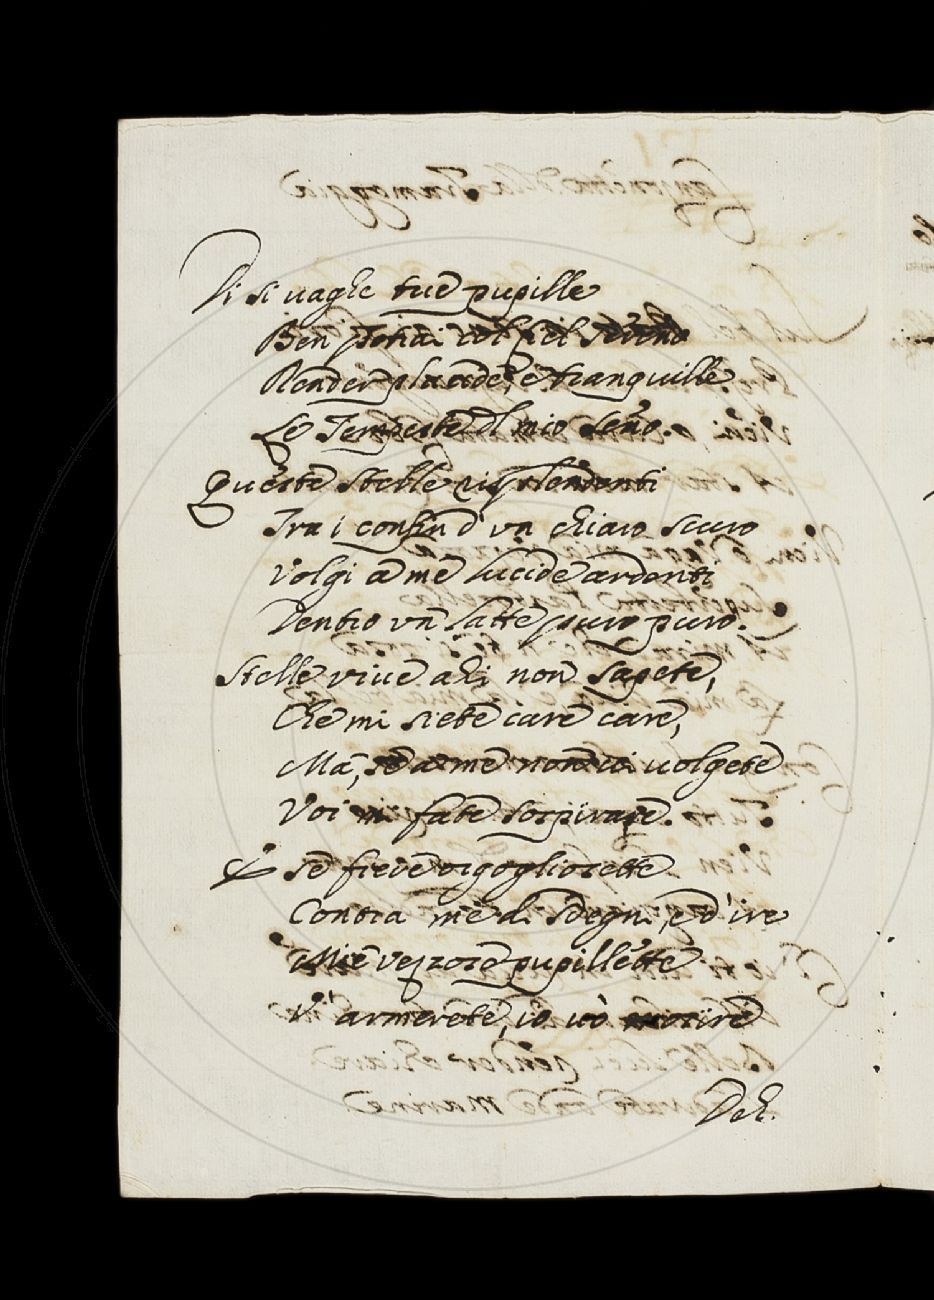 Di sì vaghe tue pupille
Ben potrai col bel sereno
Render placide, e tranquille
Le Tempeste al mio seno.
Queste stelle risplendenti
Tra i confin d'un chiaro scuro
Volgi a me lucide ardenti
Dentro un latte puro puro.
Stelle vive ahi non sapete,
Che mi siete care care,
Ma, se a me non vi volgete
Voi mi fate sospirare.
E se fieve orgogliosette
Contra me di sdegni, e d'ire
Mie vezzose pupillette
V'armerete, io vò morire
Deh.